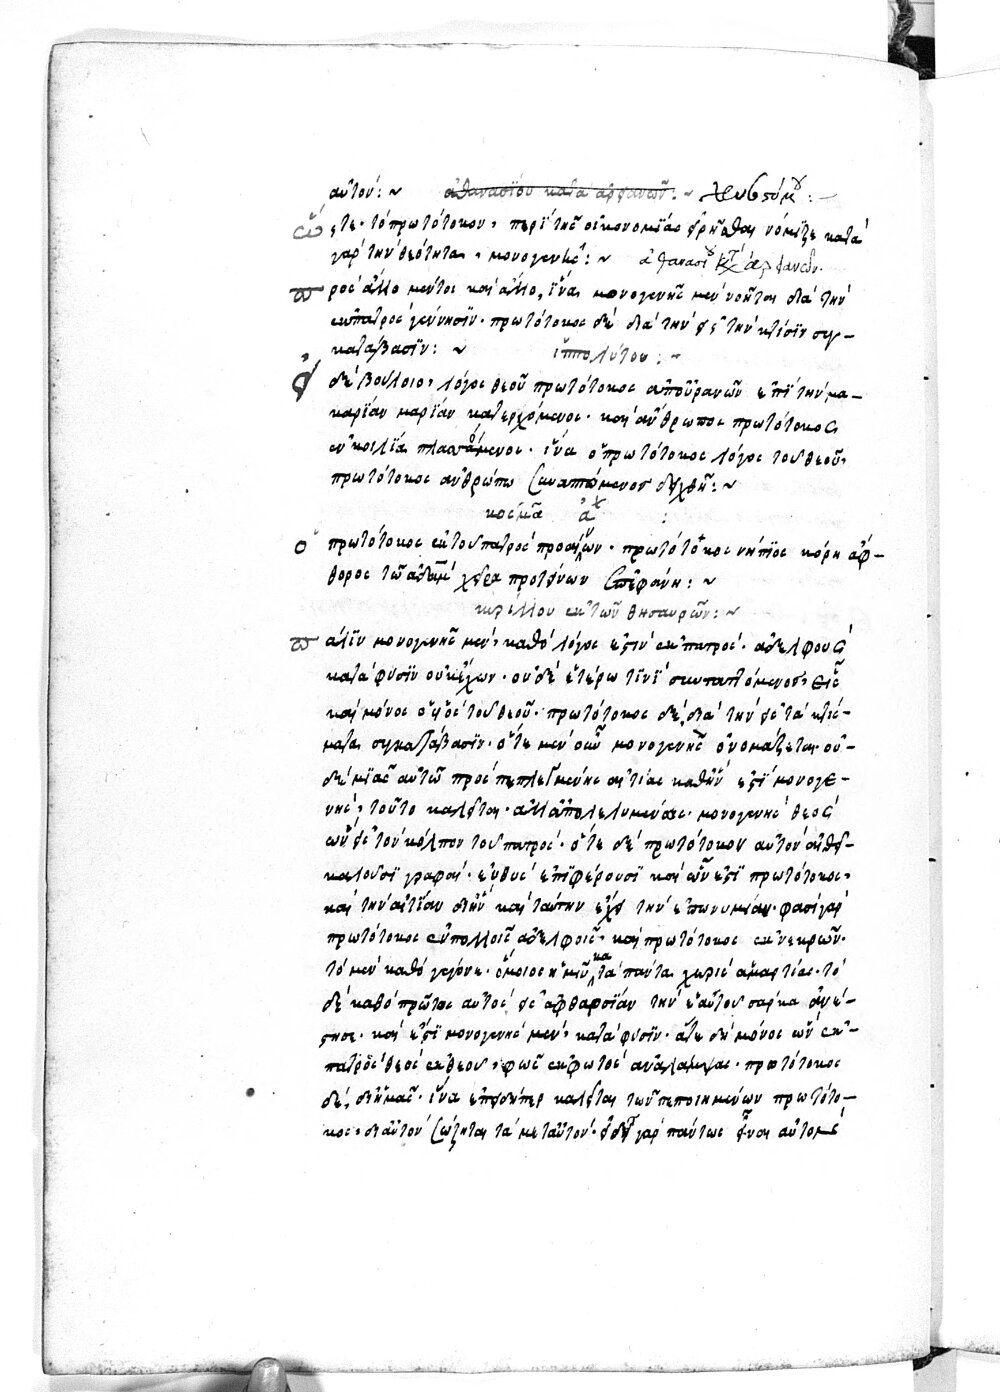 αὐτόν: ~ ἀθανασίου κατὰ ἀρειανῶν: ~ χρυσοστόμου: ~
ὥστε τὸ πρωτότοκον, περὶ τῆς οἰκονομίας εἰρῆσθαι νόμιζε κατὰ
γὰρ τὴν θεότητα, μονογενής: ~ ἀθανασίου κατὰ ἀρειανῶν.
πρὸς ἄλλο μέντοι καὶ ἄλλο, ἵνα μονογενὴς μὲν νοῆται διὰ τὴν
ἐκ πατρὸς γέννησιν· πρωτότοκος δὲ διὰ τὴν εἰς τὴν κτίσιν συγ-
κατάβασιν: ~ ἱππολύτου: ~
εἰ δὲ βούλοιο, λόγος θεοῦ πρωτότοκος ἀπ' οὐρανῶν ἐπὶ τὴν μα-
καρίαν μαρίαν κατερχόμενος· καὶ ἄνθρωπος πρωτότοκος
ἐν κοιλία πλασσόμενος· ἵνα ὁ πρωτότοκος λόγος τοῦ θεοῦ,
πρωτότοκος ἀνθρώπω συναπτόμενος δειχθῆ: ~
κοσμᾶ
ὁ πρωτότοκος ἐκ τοῦ πατρὸς προσιὼν· πρωτότοκος νήπιος κόρη ἀφ-
θορος τῶ ἀδὰμ χεῖρα προτείνων ἐπεφάνη: ~
κυρίλλου ἐκ τῶν θησαυρῶν: ~
πάλιν μονογενὴς μὲν, καθὸ λόγος ἐστὶν ἐκ πατρὸς· ἀδελφοὺς
κατὰ φύσιν οὐκ ἔχων· οὐδὲ ἑτέρω τινὶ συνταττόμενος, εἷς
καὶ μόνος ὁ υἱὸς τοῦ θεοῦ· πρωτότοκος δὲ, διὰ τὴν εἰς τὰ κτίσ-
ματα συγκατάβασιν· ὅτε μὲν οὖν μονογενὴς ὀνομάζεται· οὐ-
δεμιᾶς αὐτῶ προσπεπλεγμένης αἰτίας καθ' ἣν ἐστὶ μονογε-
νής, τοῦτο καλεῖται· ἀλλ' ἀπολελυμένως· μονογενὴς θεὸς
ὢν εἰς τὸν κόλπον τοῦ πατρός· ὅτε δὲ πρωτότοκον αὐτὸν αἱ θεῖ-
καλοῦσι γραφαί· εὐθὺς ἐπιφέρουσι καὶ ὧν ἐστὶ πρωτότοκος,
καὶ τὴν αἰτίαν δι' ἣν καὶ ταύτην ἔχει τὴν ἐπωνυμίαν· φασὶ γὰρ
πρωτότοκος ἐν πολλοῖς ἀδελφοῖς, καὶ πρωτότοκος ἐκ νεκρῶν·
τὸ μὲν καθὸ γέγονε· ὅμοιος ἡμῖν κατὰ πάντα χωρὶς ἁμαρτίας· τὸ
δὲ καθὸ πρῶτος αὐτὸς εἰς ἀφθαρσίαν τὴν ἑαυτοῦ σάρκα ἀνέ-
στησε· καὶ ἔστι μονογενὴς μὲν, κατὰ φύσιν· ἅτε δὴ μόνος ὢν ἐκ
πατρὸς θεὸς ἐκ θεοῦ, φῶς ἐκ φωτὸς ἀναλάμψας· πρωτότοκος
δὲ, δι' ἡμᾶς· ἵνα ἐπειδήπερ καλεῖται τῶν πεποιημένων πρωτότο-
κος, δι' αὐτὸν σώζηται τὰ μετ' αὐτόν· ἔδει γὰρ πάντως εἶναι αὐτὸ μὲ